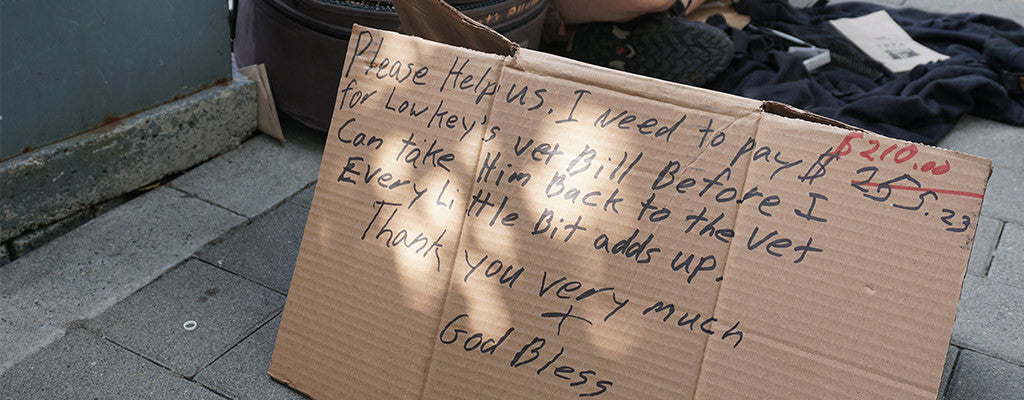 $210.00
Please Help us. I need to pay $ 255.23
for Lowkey's vet Bill Before I
Can take Him Back to the vet
Every Little Bit adds up.
Thank you very much
+
God Bless